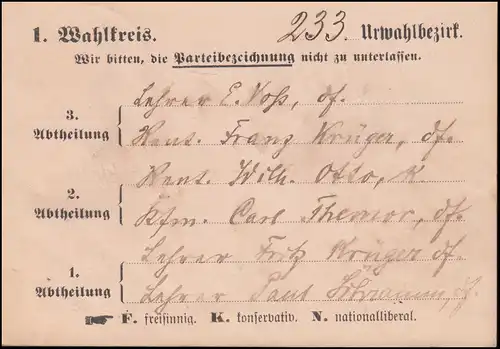 1. Wahlkreis. 233. Urwahlbezirk.
Wir bitten, die Parteibezeichnung nicht zu unterlassen.
3. Abtheilung { Lehrer E. Voß, df.
Rent. Franz Krüger, df.
2. Abtheilung { Rent. Wilh. Otto, K.
Kfm. Carl df.
1. Abtheilung { Lehrer Fritz Krüger df.
Lehrer Paul df.
F. freisinnig. K. konservativ. N. nationalliberal.